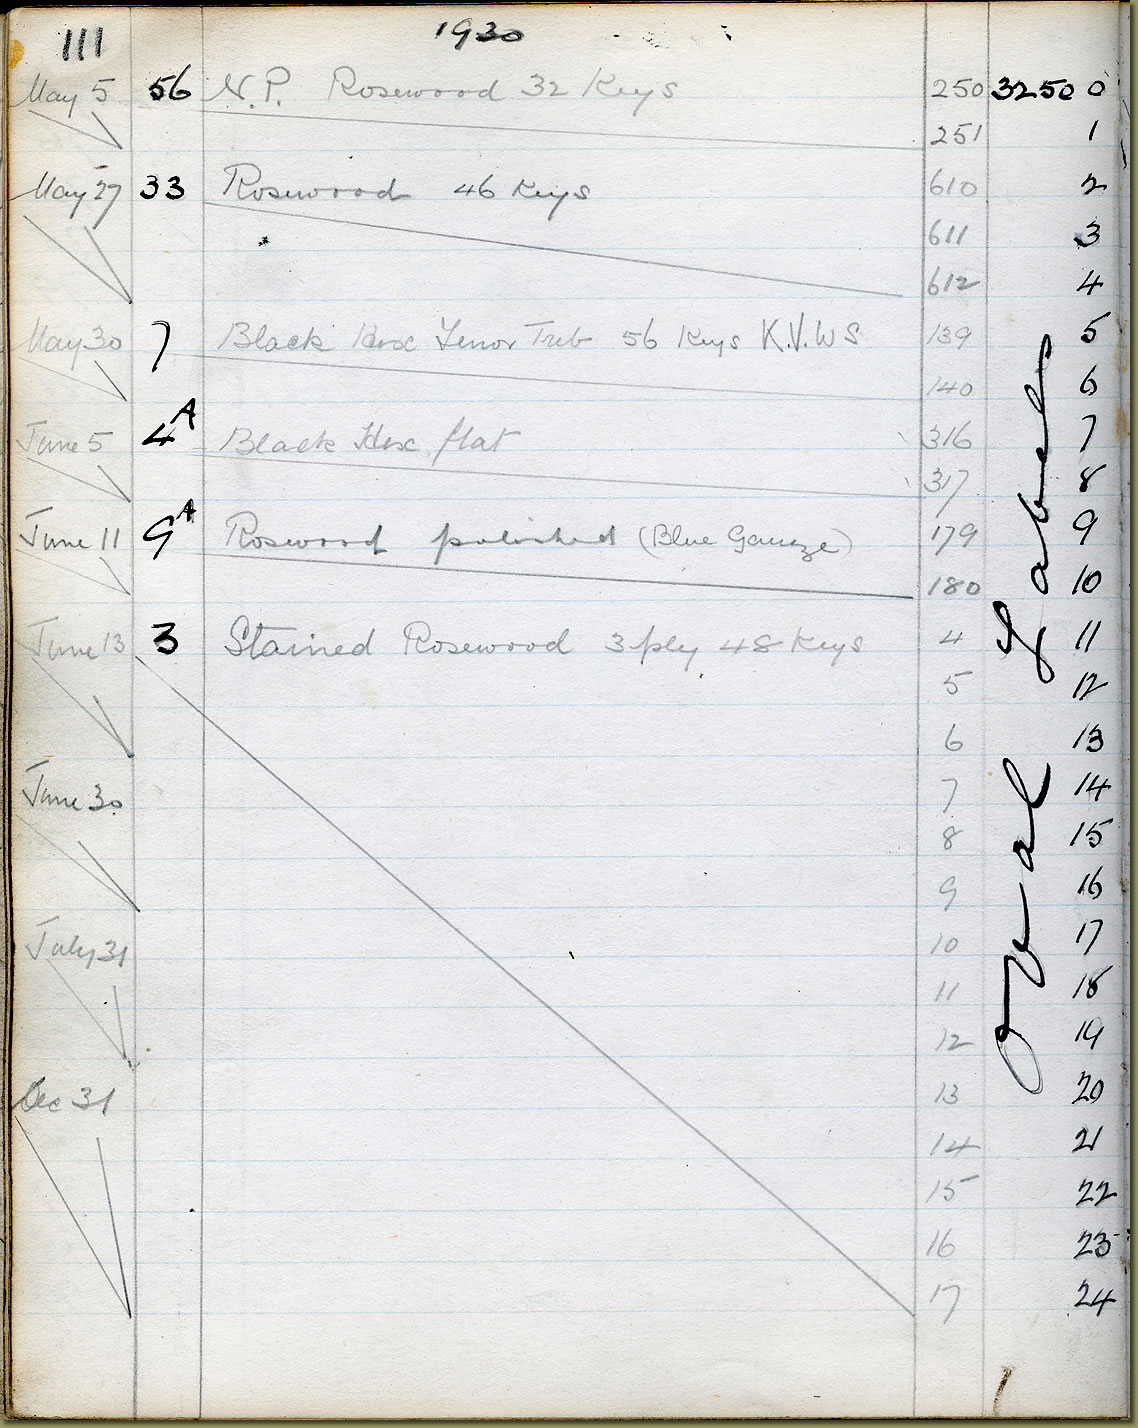 111 1930
May 5 56 N.P. Rosewood 32 Keys 250 32500
251 1
May 27 33 Rosewood 46 Keys 610 2
611 3
612 4
May 30 7 Black Hex Tenor Treb 56 Keys K.V.W S 139 5
140 6
June 5 4A Black Hex flat 316 7
317 8
June 11 9A Rosewood polished (Blue Gauze) 179 9
180 10
June 13 3 Stained Rosewood 3 ply 48 Keys 4 11
5 12
6 13
June 30 7 14
8 15
9 16
July 31 10 17
11 18
12 19
Dec 31 13 20
14 21
15 22
16 23
17 24
Oval Labels